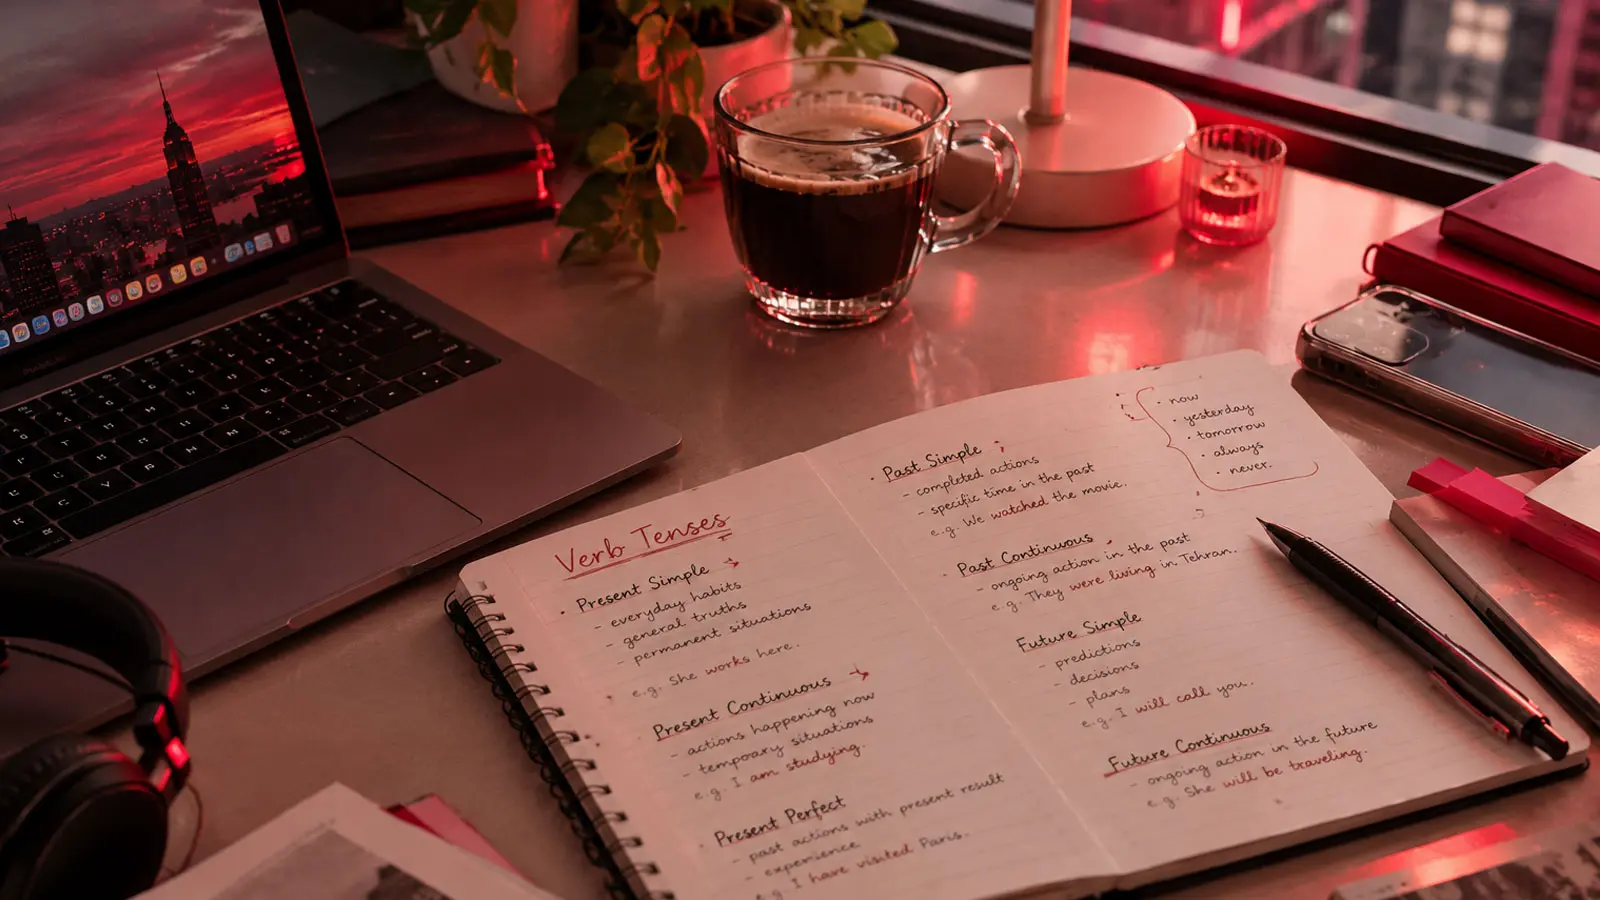 Verb Tenses
Present Simple
- everyday habits
- general truths
- permanent situations
e.g. She works here.
Present Continuous
- actions happening now
- temporary situations
e.g. I am studying.
Present Perfect
- past actions with present result
- experience
e.g. I have visited Paris.
Past Simple
- completed actions
- specific time in the past
e.g. We watched the movie.
Past Continuous
- ongoing action in the past
e.g. They were living in Tehran.
Future Simple
- predictions
- decisions
- plans
e.g. I will call you.
Future Continuous
- ongoing action in the future
e.g. She will be traveling.
• now
• yesterday
• tomorrow
• always
• never.